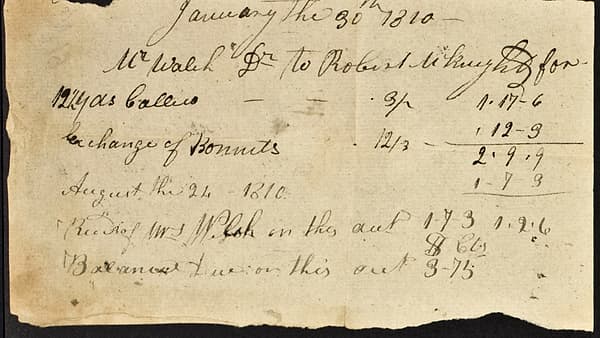 January the 30th 1810 —
Mr Walsh Dr to Robert McKnight for
12½ yds Callico — — . 3/ 1.17-6
Exchange of Bonnets . 12/3 - . 12-3
2.9.9
August the 24 - 1810 1-7 3
Recd of Mrs Walsh on this act 1.7 3 1.2.6
$ Cts
Balance Due on this act 3-75